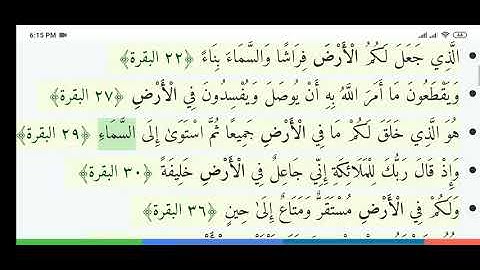 6:15 PM
الَّذِي جَعَلَ لَكُمُ الْأَرْضَ فِرَاشًا وَالسَّمَاءَ بِنَاءً ﴿٢٢ البقرة﴾
وَيَقْطَعُونَ مَا أَمَرَ اللَّهُ بِهِ أَنْ يُوصَلَ وَيُفْسِدُونَ فِي الْأَرْضِ ﴿٢٧ البقرة﴾
هُوَ الَّذِي خَلَقَ لَكُمْ مَا فِي الْأَرْضِ جَمِيعًا ثُمَّ اسْتَوَىٰ إِلَى السَّمَاءِ ﴿٢٩ البقرة﴾
وَإِذْ قَالَ رَبُّكَ لِلْمَلَائِكَةِ إِنِّي جَاعِلٌ فِي الْأَرْضِ خَلِيفَةً ﴿٣٠ البقرة﴾
وَلَكُمْ فِي الْأَرْضِ مُسْتَقَرٌّ وَمَتَاعٌ إِلَىٰ حِينٍ ﴿٣٦ البقرة﴾